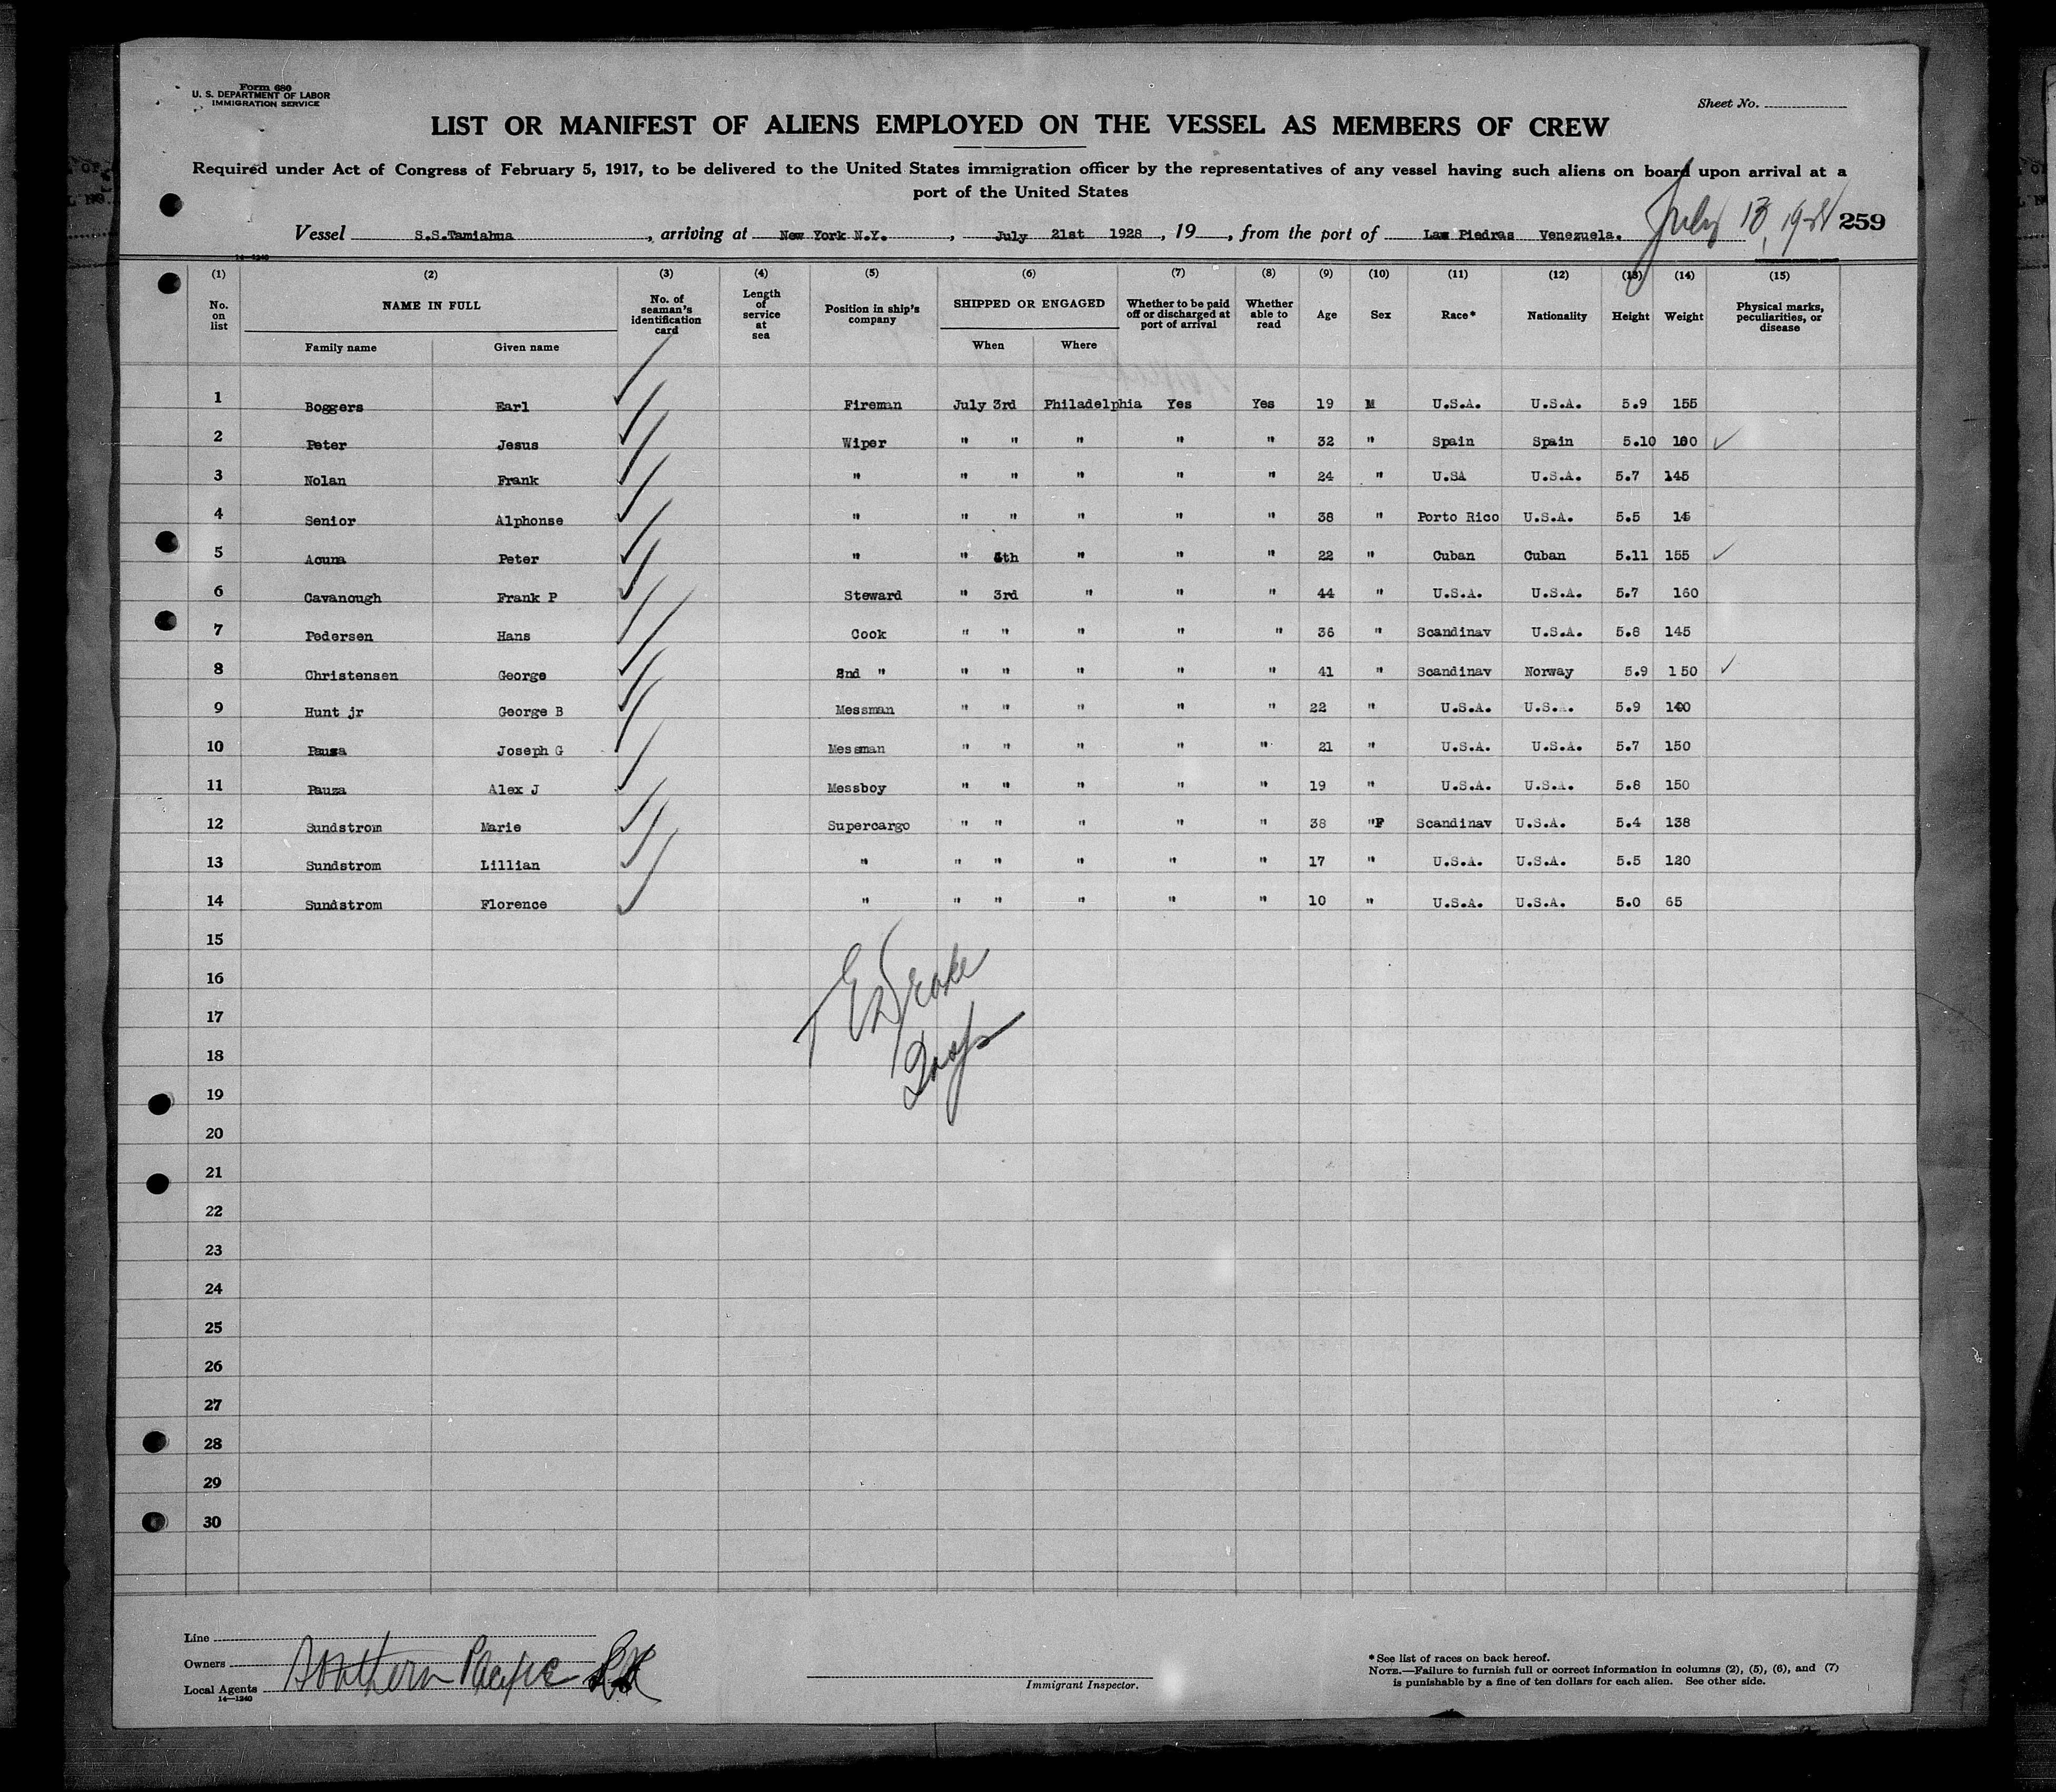 Form 680
U. S. DEPARTMENT OF LABOR
IMMIGRATION SERVICE
Sheet No.
LIST OR MANIFEST OF ALIENS EMPLOYED ON THE VESSEL AS MEMBERS OF CREW
Required under Act of Congress of February 5, 1917, to be delivered to the United States immigration officer by the representatives of any vessel having such aliens on board upon arrival at a
port of the United States
Vessel S.S.Tamiahua, arriving at New York N.Y., July 21st 1928, 19, from the port of Las Piedras Venezuela. July 13, 1928 259
14-1240
(1) (2) (3) (4) (5) (6) (7) (8) (9) (10) (11) (12) (13) (14) (15)
No. on list NAME IN FULL No. of seaman's identification card Length of service at sea Position in ship's company SHIPPED OR ENGAGED Whether to be paid off or discharged at port of arrival Whether able to read Age Sex Race* Nationality Height Weight Physical marks, peculiarities, or disease
Family name Given name When Where
1 Boggers Earl Fireman July 3rd Philadelphia Yes Yes 19 M U.S.A. U.S.A. 5.9 155
2 Peter Jesus Wiper " " " " " 32 " Spain Spain 5.10 160 ✓
3 Nolan Frank " " " " " " 24 " U.SA U.S.A. 5.7 145
4 Senior Alphonse " " " " " " 38 " Porto Rico U.S.A. 5.5 15
5 Acuna Peter " " 5th " " " 22 " Cuban Cuban 5.11 155 ✓
6 Cavanough Frank P Steward " 3rd " " " 44 " U.S.A. U.S.A. 5.7 160
7 Pedersen Hans Cook " " " " " 36 " Scandinav U.S.A. 5.8 145
8 Christensen George 2nd " " " " " " 41 " Scandinav Norway 5.9 150 ✓
9 Hunt jr George B Messman " " " " " 22 " U.S.A. U.S.A. 5.9 140
10 Pauza Joseph G Messman " " " " " 21 " U.S.A. U.S.A. 5.7 150
11 Pauza Alex J Messboy " " " " " 19 " U.S.A. U.S.A. 5.8 150
12 Sundstrom Marie Supercargo " " " " " 38 "F Scandinav U.S.A. 5.4 138
13 Sundstrom Lillian " " " " " " 17 " U.S.A. U.S.A. 5.5 120
14 Sundstrom Florence " " " " " " 10 " U.S.A. U.S.A. 5.0 65
15
16
17
18
19
20
21
22
23
24
25
26
27
28
29
30
E Drake
Line
Owners
Local Agents Southern Pacific
14-1240
Immigrant Inspector.
*See list of races on back hereof.
NOTE.—Failure to furnish full or correct information in columns (2), (5), (6), and (7)
is punishable by a fine of ten dollars for each alien. See other side.